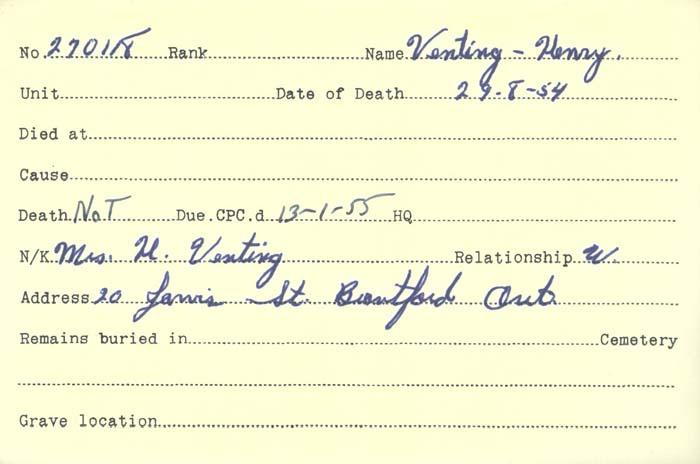 No. 27018 Rank Name Venting - Henry.
Unit Date of Death 29-8-54
Died at
Cause
Death Not Due.CPC.d 13-1-55 HQ
N/K Mrs. H. Venting Relationship W.
Address 20 Jarvis St. Brantford Ont.
Remains buried in Cemetery
Grave location